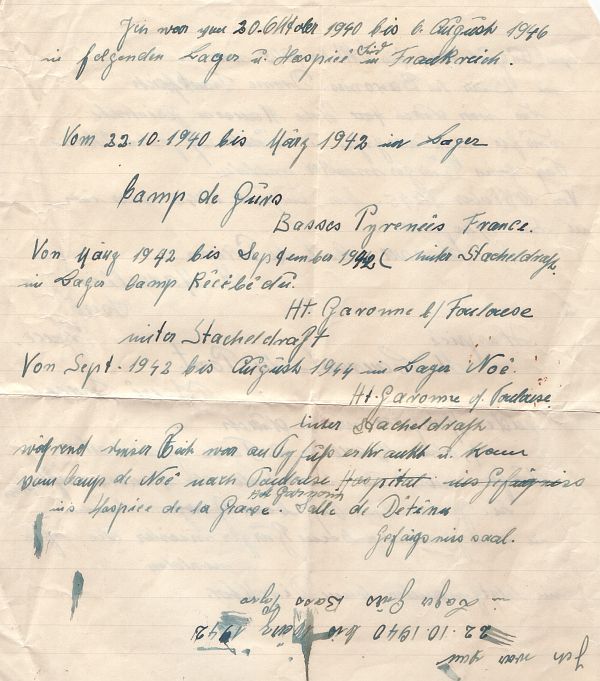 Ich war vom 20. Oktober 1940 bis 6. August 1946
in folgenden Lager u. Hospice in Frankreich.
Vom 22.10.1940 bis März 1942 im Lager
Camp de Gürs
Basses Pyreneés France.
Von März 1942 bis September 1942 ( hinter Stacheldraft
im Lager Camp Récébédu.
Ht. Garonne b/ Toulouse
hinter Stacheldraft
Von Sept. 1942 bis August 1944 im Lager Noé.
Ht. Garonne d. Toulouse
hinter Stacheldraft
während dieser Zeit war an Tyfuss erkrankt u. kam
vom Camp de Noé nach Toulouse Hospital ins Gefägniss
ins Hospice de la Grave. Salle de Déténu
Gefägniss saal.
Ich war vom
22.10.1940 bis März 1942
in Lager Gürs Basses